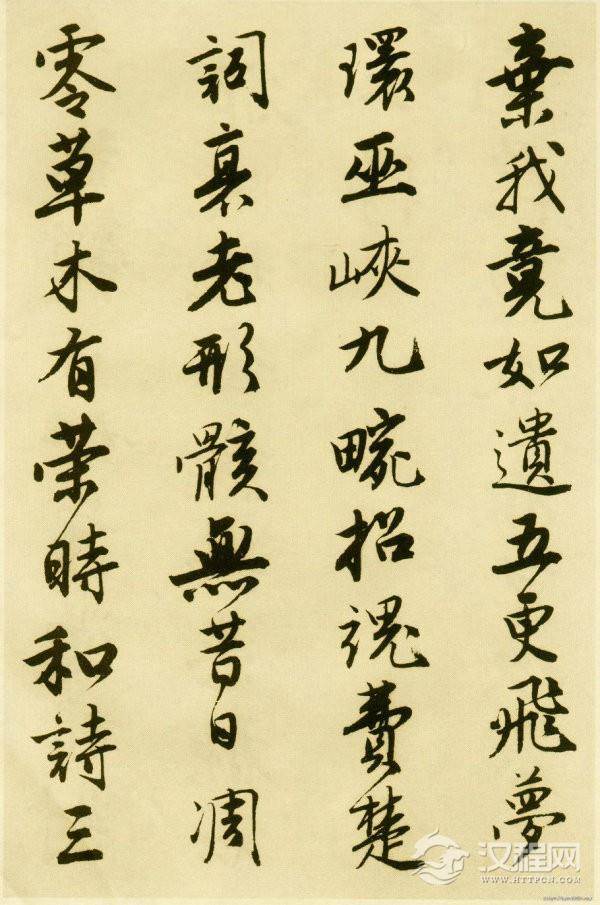 棄我竟如遺五更飛夢
環巫峽九畹招魂費楚
詞衰老形骸無昔日凋
零草木有榮時和詩三
汉程网
WWW.HTTPCN.COM